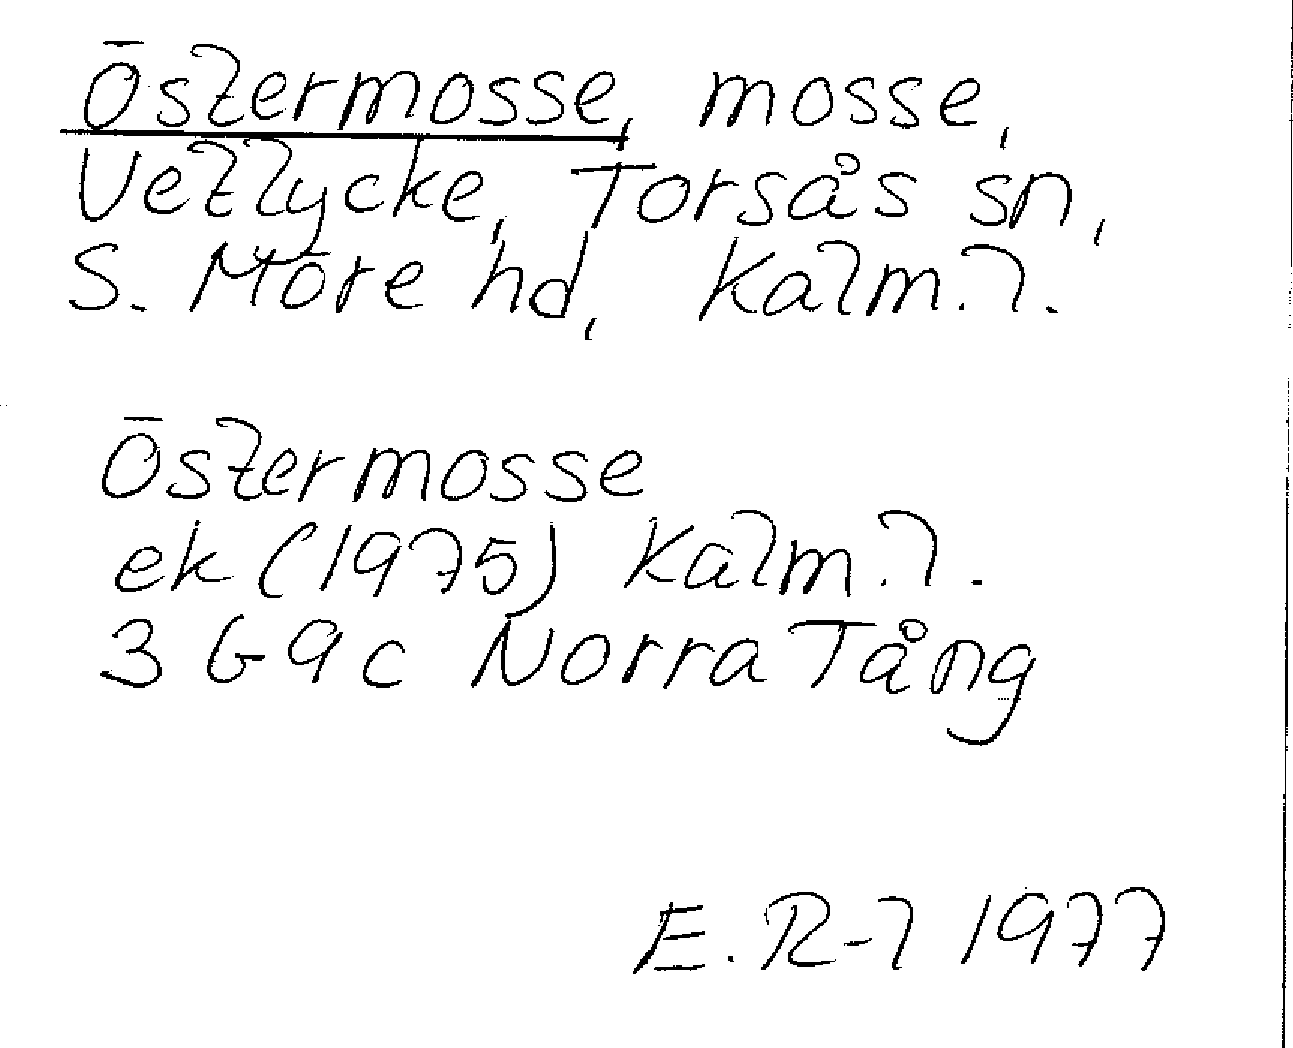 Östermosse, mosse,
Vetlycke, Torsås sn,
S. Möre hd, Kalm. l.
Östermosse
ek (1975) Kalm. l.
3 G 9 c Norra Tång
E. R-l 1977